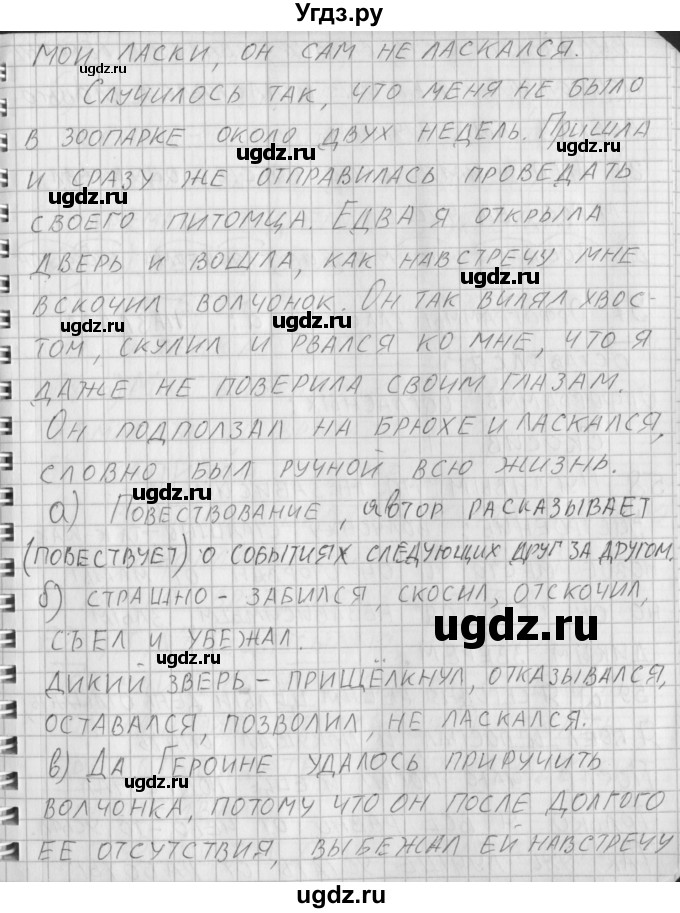 Угдз.ру
мои ласки, он сам не ласкался.
Случилось так, что меня не было
в зоопарке около двух недель. Пришла
и сразу же отправилась проведать
своего питомца. Едва я открыла
дверь и вошла, как навстречу мне
вскочил волчонок. Он так вилял хвос-
том, скулил и рвался ко мне, что я
даже не поверила своим глазам.
Он подползал на брюхе и ласкался,
словно был ручной всю жизнь.
а) Повествование, автор расказывает
(повествует) о событиях следующих друг за другом.
б) страшно - забился, скосил, отскочил,
съел и убежал.
дикий зверь - прищёлкнул, отказывался,
оставался, позволил, не ласкался.
в) Да Героине удалось приручить
волчонка, потому что он после долгого
ее отсутствия, выбежал ей навстречу
ugdz.ru